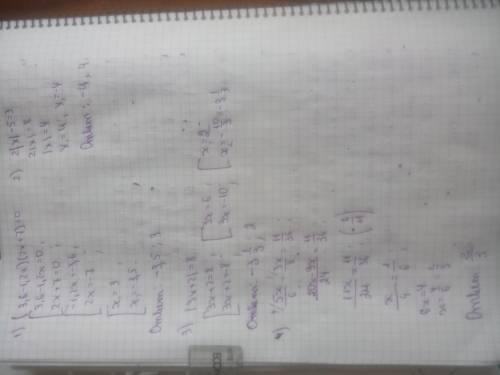 1) (3,6-1,2x)(2x+7)=0
[3,6-1,2x=0,
[2x+7=0;
[-1,2x=-3,6,
[2x=-7
[x=3
[x=-3,5.
Ответ: -3,5; 3.
2) 2|x|-5=3
2|x|=8
|x|=4
x=4; x=-4
Ответ: -4; 4.
3) |3x+2|=8
[3x+2=8
[3x+2=-8;
[3x=6
[3x=-10;
[x=2
[x=-10/3=-3 1/3
Ответ: -3 1/3; 2
4) 5x/6 - 3x/8 = 11/36
20x-9x/24 = 11/36
11x/24 = 11/36
x/4 = 1/6
6x=4
x=4/6=2/3
Ответ: 2/3